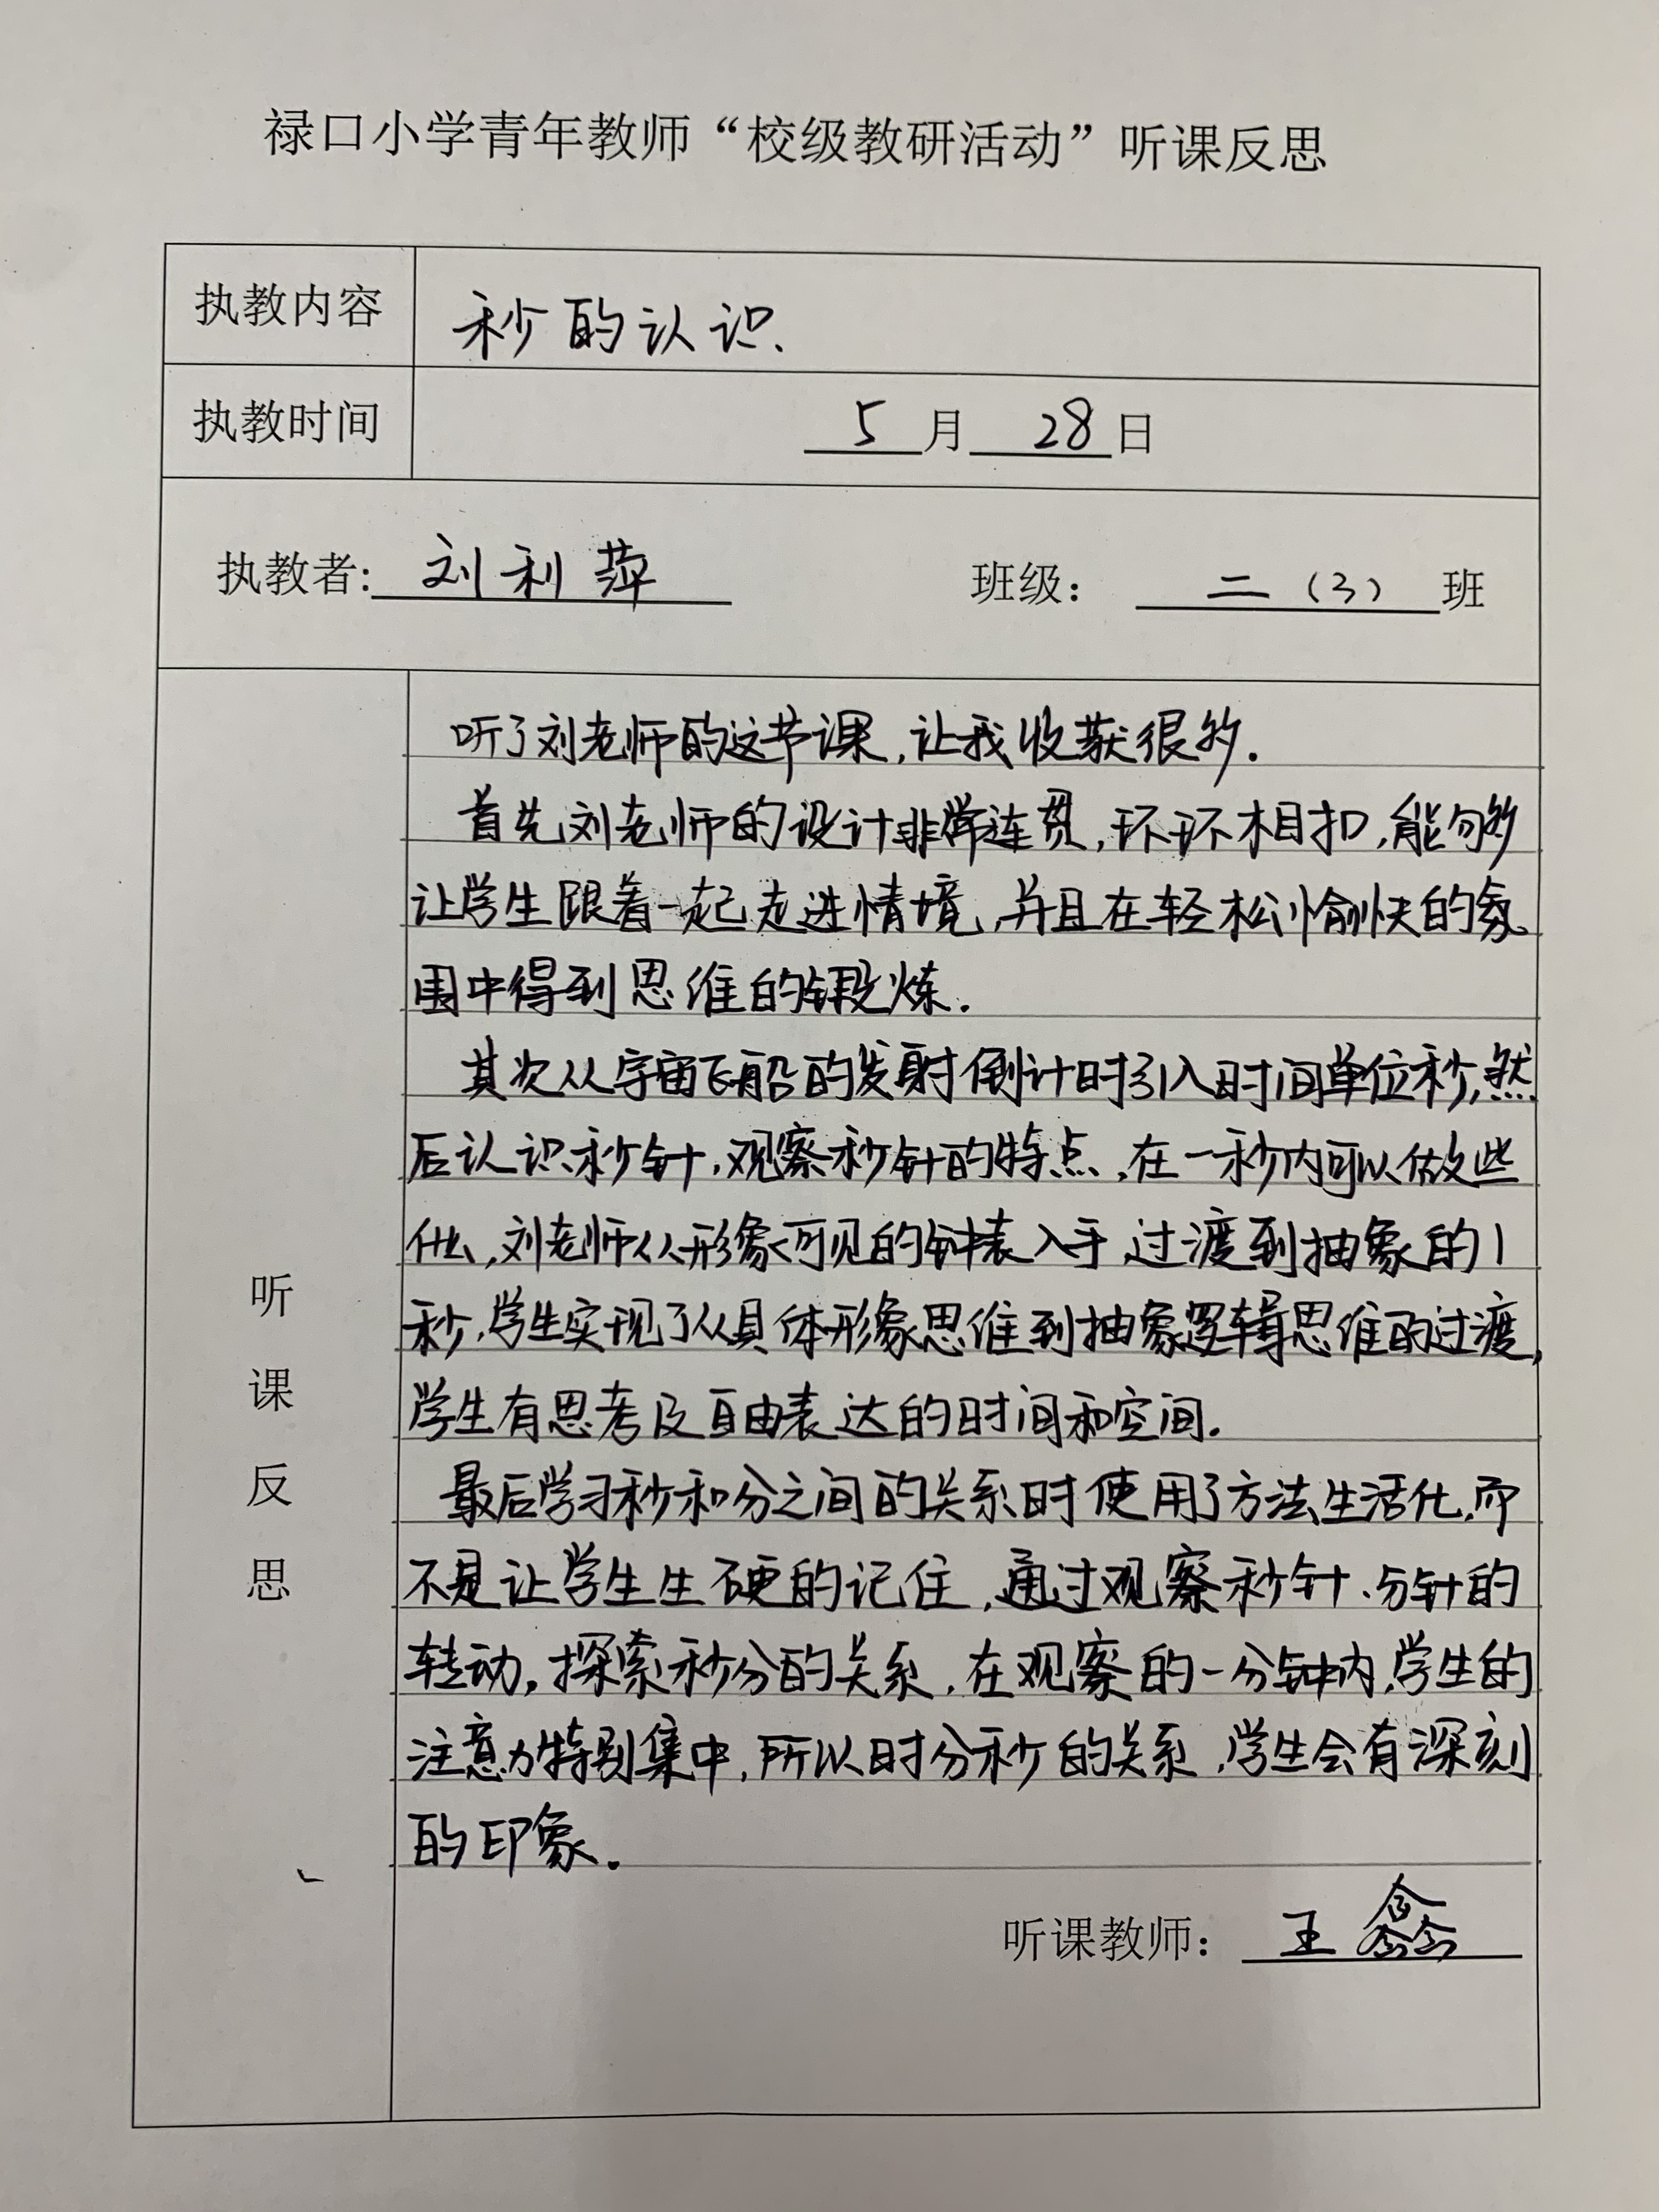 禄口小学青年教师“校级教研活动”听课反思
执教内容 秒的认识.
执教时间 5月28日
执教者: 刘利萍 班级: 二(3)班
听了刘老师的这节课,让我收获很多.
首先刘老师的设计非常连贯,环环相扣,能够
让学生跟着一起走进情境,并且在轻松愉快的氛
围中得到思维的锻炼.
其次从宇宙飞船的发射倒计时引入时间单位秒,然
后认识秒针,观察秒针的特点,在一秒内可以做些
什么,刘老师从形象可见的钟表入手,过渡到抽象的1
秒,学生实现了从具体形象思维到抽象逻辑思维的过渡,
学生有思考及自由表达的时间和空间.
最后学习秒和分之间的关系时使用了方法生活化,而
不是让学生生硬的记住,通过观察秒针、分针的
转动,探索秒分的关系,在观察的一分钟内,学生的
注意力特别集中,所以时分秒的关系,学生会有深刻
的印象.
听课反思
听课教师: 王鑫